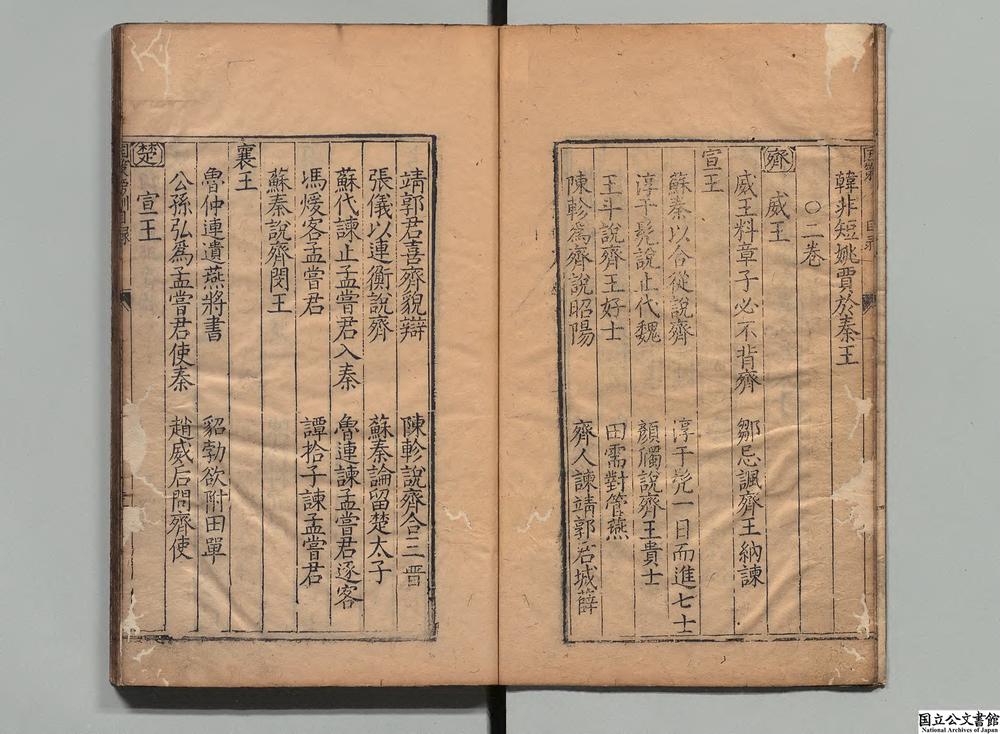 韓非短姚賈於秦王
○二巻
齊 威王
威王料章子必不背齊 鄒忌諷齊王納諫
宣王
蘇秦以合從說齊 淳于髡一日而進七士
淳于髡說止代魏 顔斶說齊王貴士
王斗說齊王好士 田需對管燕
陳軫爲齊說昭陽 齊人諫靖郭君城薛
靖郭君喜齊貌辯 陳軫說齊合三晋
張儀以連衡說齊 蘇秦論留楚太子
蘇代諫止孟嘗君入秦 魯連諫孟嘗君逐客
馮煖客孟嘗君 譚拾子諫孟嘗君
蘇秦說齊閔王
襄王
魯仲連遺燕將書 貂勃欲附田單
公孫弘爲孟嘗君使秦 趙威后問齊使
楚 宣王
国立公文書館
National Archives of Japan